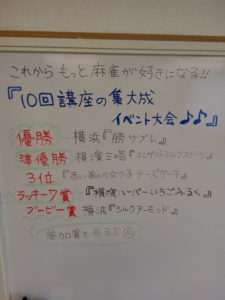 これからもっと麻雀が好きになる!!
『10回講座の集大成
イベント大会♪♪』
優勝 横浜『勝サブレ』
準優勝 横濱三塔『エレガントミルクスイーツ』
3位 『赤い靴の女の子チーズケーキ』
ラッキー7賞 『横濱ハーバーいちごみるく』
ブービー賞 横浜『シルクアーモンド』
参加賞もあるよ